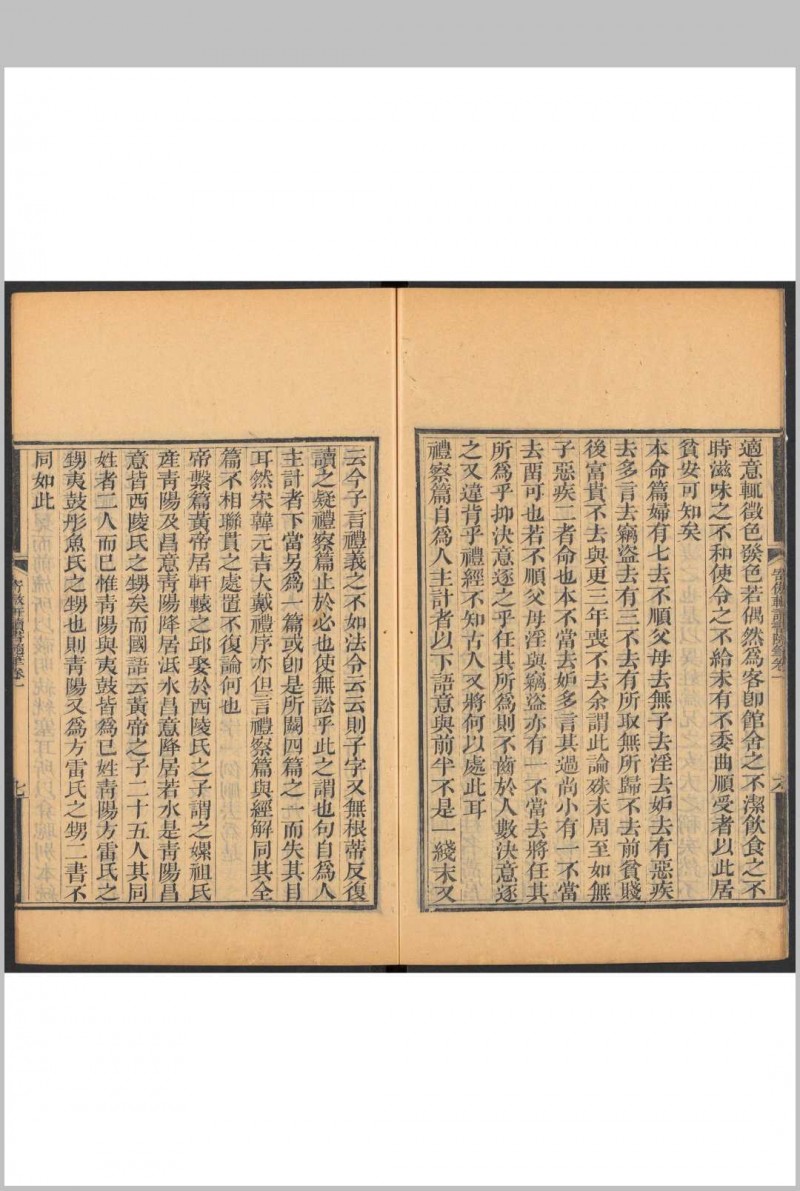 適意輒徵色發色若偶然爲客卽館舍之不潔飮食之不
時滋味之不和使令之不給未有不委曲順受者以此居
貧安可知矣
本命篇婦有七去不順父母去無子去淫去妒去有惡疾
去多言去竊盜去有三不去有所取無所歸不去前貧賤
後富貴不去與更三年喪不去余謂此論殊未周至如無
子惡疾二者命也本不當去妒多言其過尚小有一不當
去畱可也若不順父母淫與竊盜亦有一不當去將任其
所爲乎抑決意逐之乎任其所爲則不齒於人數決意逐
之又違背乎禮經不知古人又將何以處此耳
禮察篇自爲人主計者以下語意與前半不是一綫末又
云今子言禮義之不如法令云云則子字又無根蒂反復
讀之疑禮察篇止於必也使無訟乎此之謂也句自爲人
主計者下當另爲一篇或卽是所闕四篇之一而失其目
耳然宋韓元吉大戴禮序亦但言禮察篇與經解同其全
篇不相聯貫之處置不復論何也
帝繫篇黃帝居軒轅之邱娶於西陵氏之子謂之嫘祖氏
產靑陽及昌意靑陽降居泜水昌意降居若水是靑陽昌
意皆西陵氏之甥矣而國語云黃帝之子二十五人其同
姓者二人而已惟靑陽與夷鼓皆爲己姓靑陽方雷氏之
甥夷鼓彤魚氏之甥也則靑陽又爲方雷氏之甥二書不
同如此
七